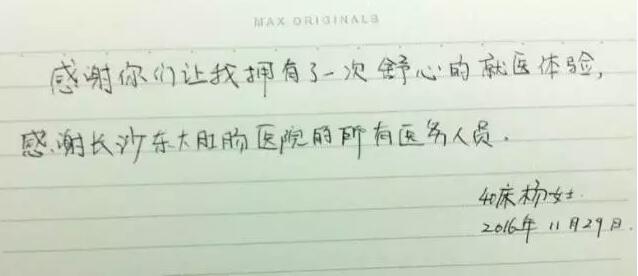 MAX ORIGINALS
感谢你们让我拥有了一次舒心的就医体验,
感谢长沙东大肛肠医院的所有医务人员.
40床杨女士.
2016年 11月29日.